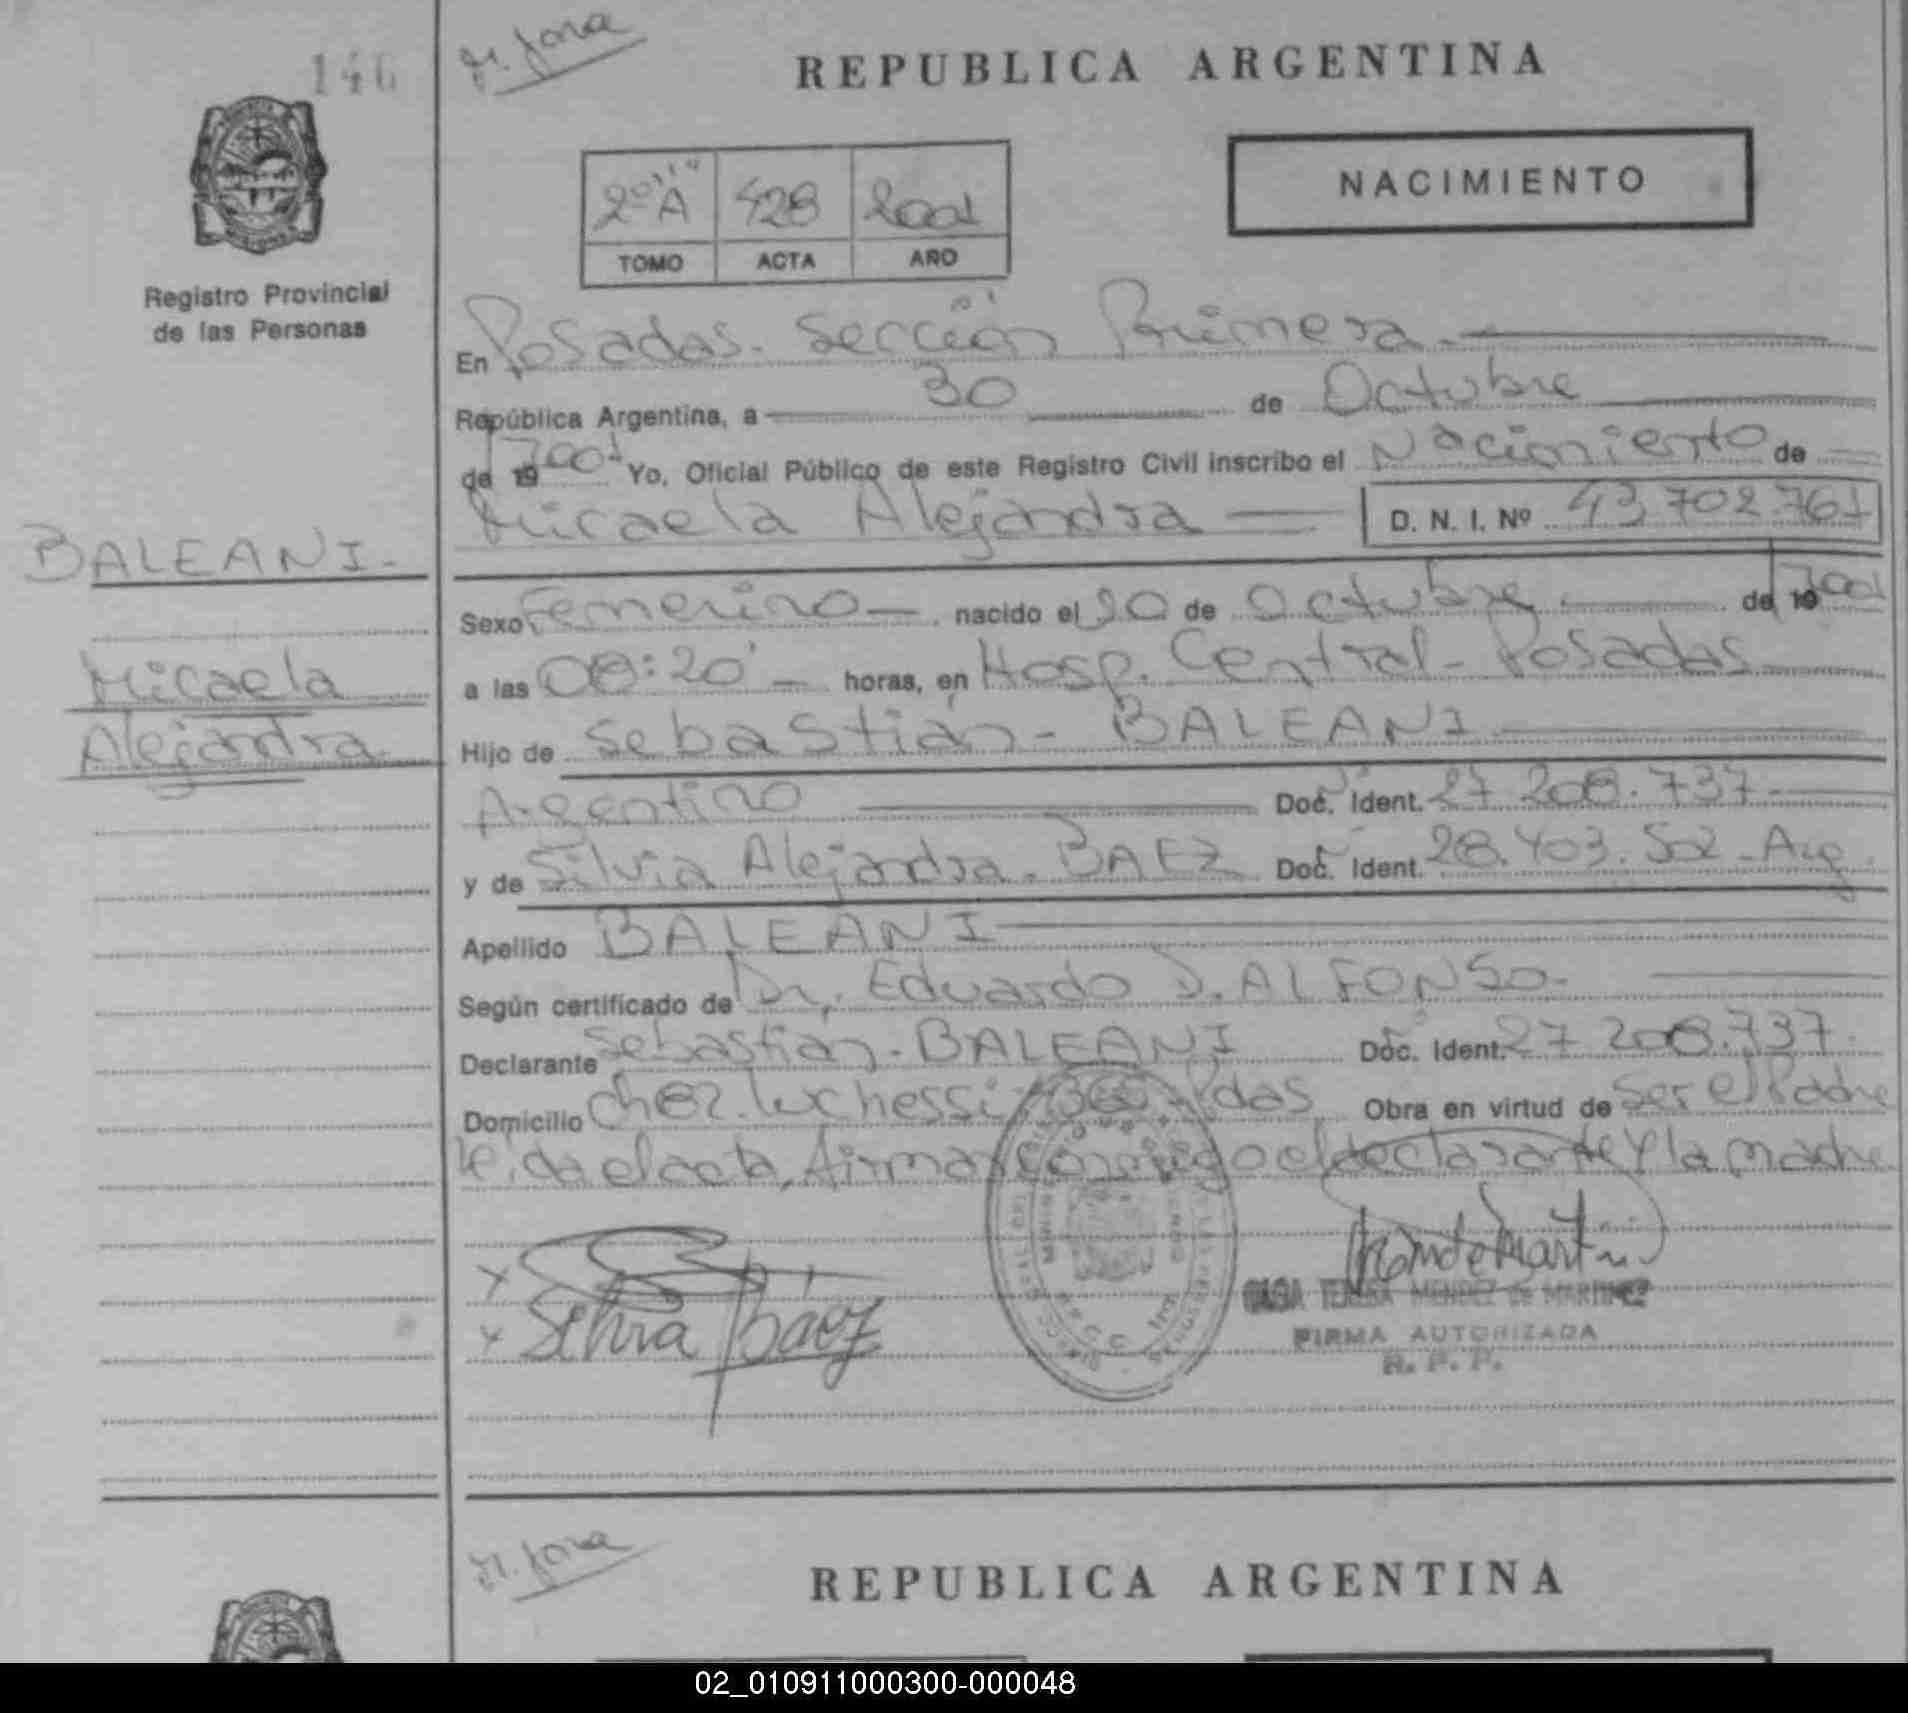 146
REPUBLICA ARGENTINA
NACIMIENTO
2º A 428 2001
TOMO ACTA AÑO
Registro Provincial
de las Personas
En Posadas. Sección Primera.
República Argentina, a 30 de Octubre
de 19 2001 Yo, Oficial Público de este Registro Civil inscribo el Nacimiento de
Micaela Alejandra D. N. I. Nº 43.702.761
BALEANI.
Sexo Femenino nacido el 20 de Octubre de 19 2001
Micaela
a las 08:20' horas, en Hosp. Central - Posadas
Alejandra.
Hijo de Sebastián - BALEANI
Argentino Doc. Ident. 27.208.737.
y de Silvia Alejandra. BAEZ Doc. Ident. 28.403.502 - Arg.
Apellido BALEANI
Según certificado de Dr. Eduardo D. ALFONSO.
Declarante Sebastián - BALEANI Doc. Ident. 27.208.737.
Domicilio Luchessi Pdas Obra en virtud de ser el Padre
Leída el acta, firman conmigo el declarante y la madre
Silvia Báez
OLGA TERESA MENDEZ de MARTINEZ
FIRMA AUTORIZADA
R. P. P.
REPUBLICA ARGENTINA
02_010911000300-000048